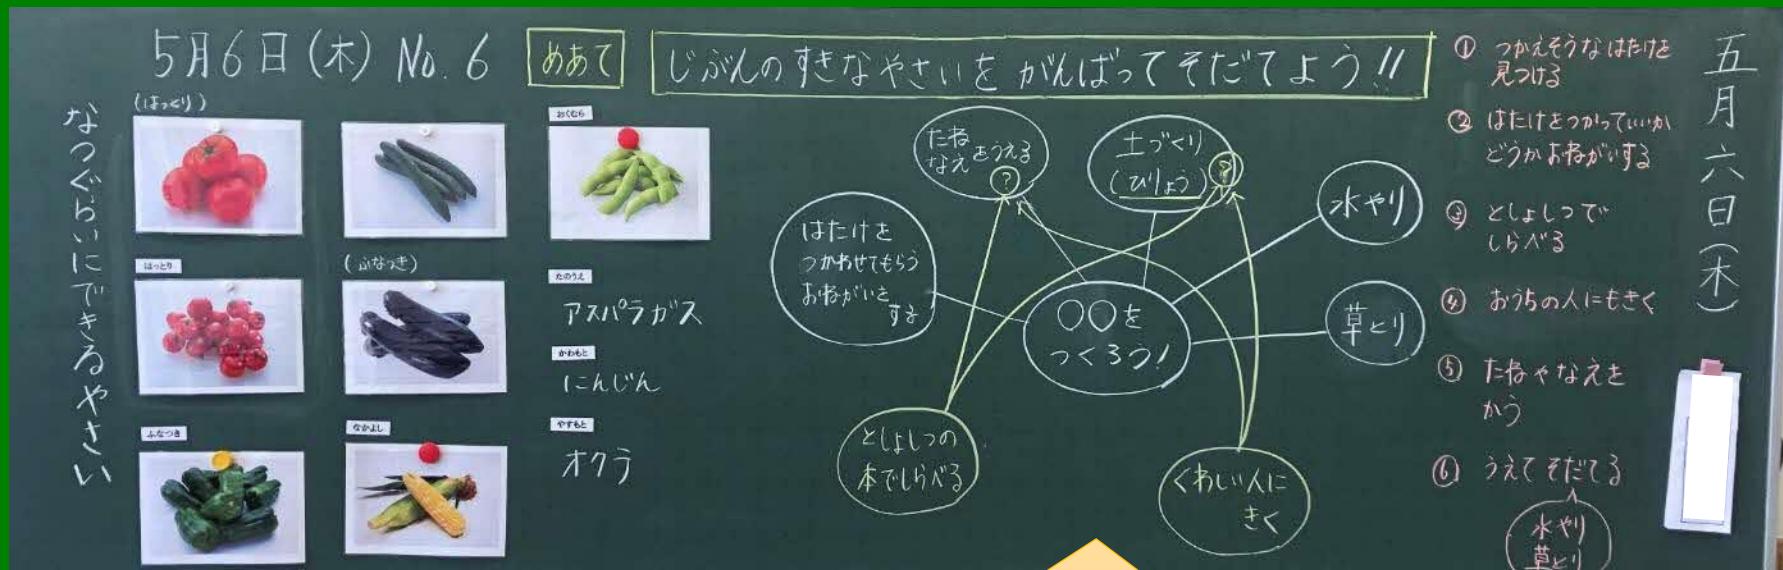 5月6日(木) No.6
めあて
じぶんのすきなやさいを がんばってそだてよう!!
なつぐらいにできるやさい
(はっとり)
おくむら
はっとり
(ふなつき)
たのうえ
アスパラガス
かわもと
にんじん
ふなつき
なかよし
やすもと
オクラ
たね
なえ をうえる
?
土づくり
(ひりょう)
?
水やり
はたけを
つかわせてもらう
おねがいを
する
○○を
つくろう!
草とり
としょしつの
本でしらべる
くわしい人に
きく
① つかえそうなはたけを
見つける
② はたけをつかっていいか
どうかおねがいする
③ としょしつで
しらべる
④ おうちの人にもきく
⑤ たねやなえを
かう
⑥ うえてそだてる
水やり
草とり
五月六日(木)